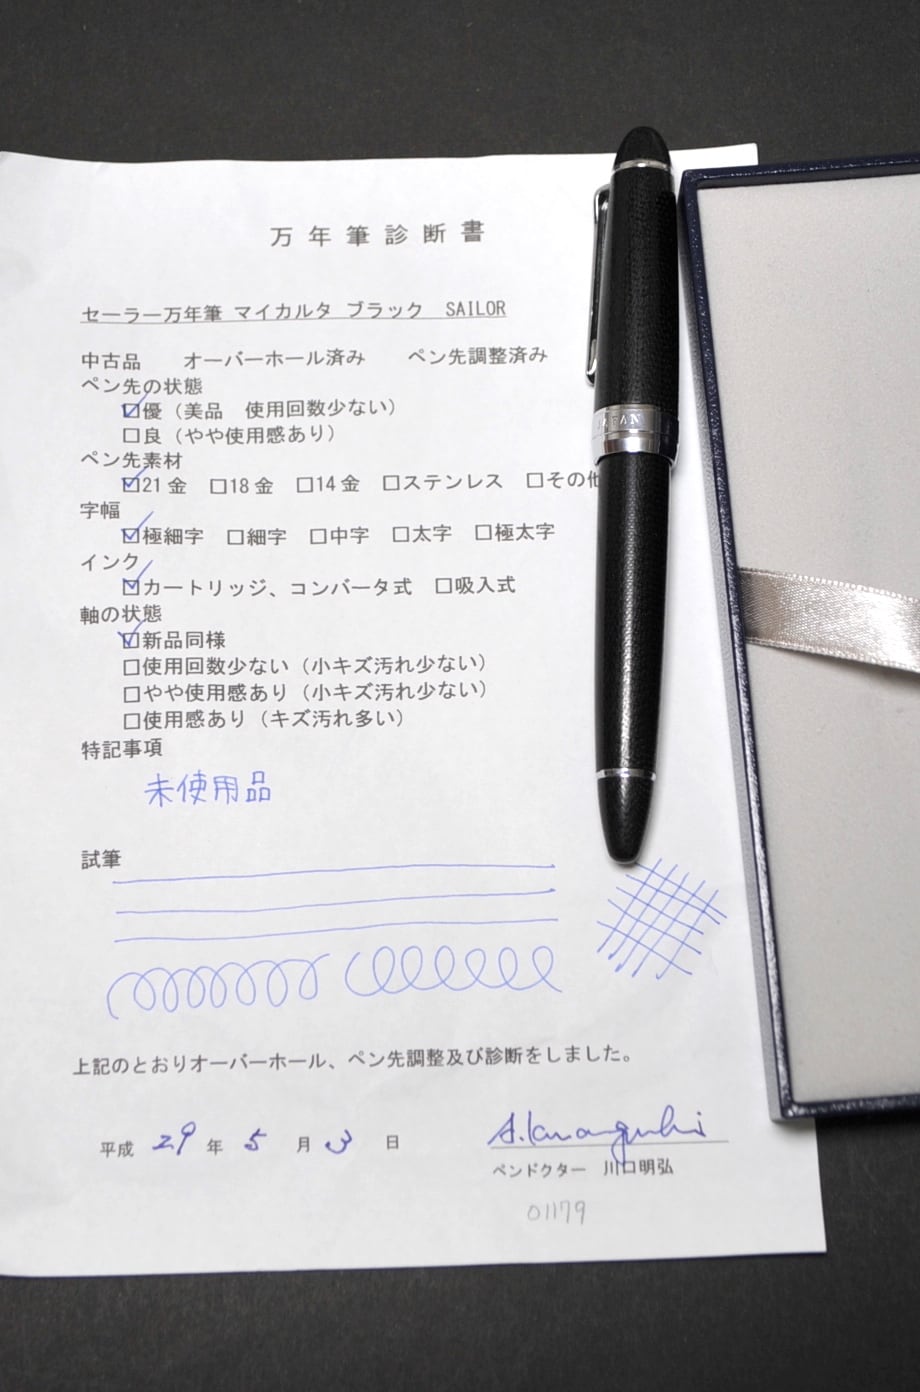 万年筆診断書
セーラー万年筆 マイカルタ ブラック SAILOR
中古品 オーバーホール済み ペン先調整済み
ペン先の状態
☑優（美品 使用回数少ない）
□良（やや使用感あり）
ペン先素材
☑21金 □18金 □14金 □ステンレス □その他
字幅
☑極細字 □細字 □中字 □太字 □極太字
インク
☑カートリッジ、コンバータ式 □吸入式
軸の状態
☑新品同様
□使用回数少ない（小キズ汚れ少ない）
□やや使用感あり（小キズ汚れ少ない）
□使用感あり（キズ汚れ多い）
特記事項
未使用品
試筆
上記のとおりオーバーホール、ペン先調整及び診断をしました。
平成 29 年 5 月 3 日
ペンドクター 川口明弘
01179